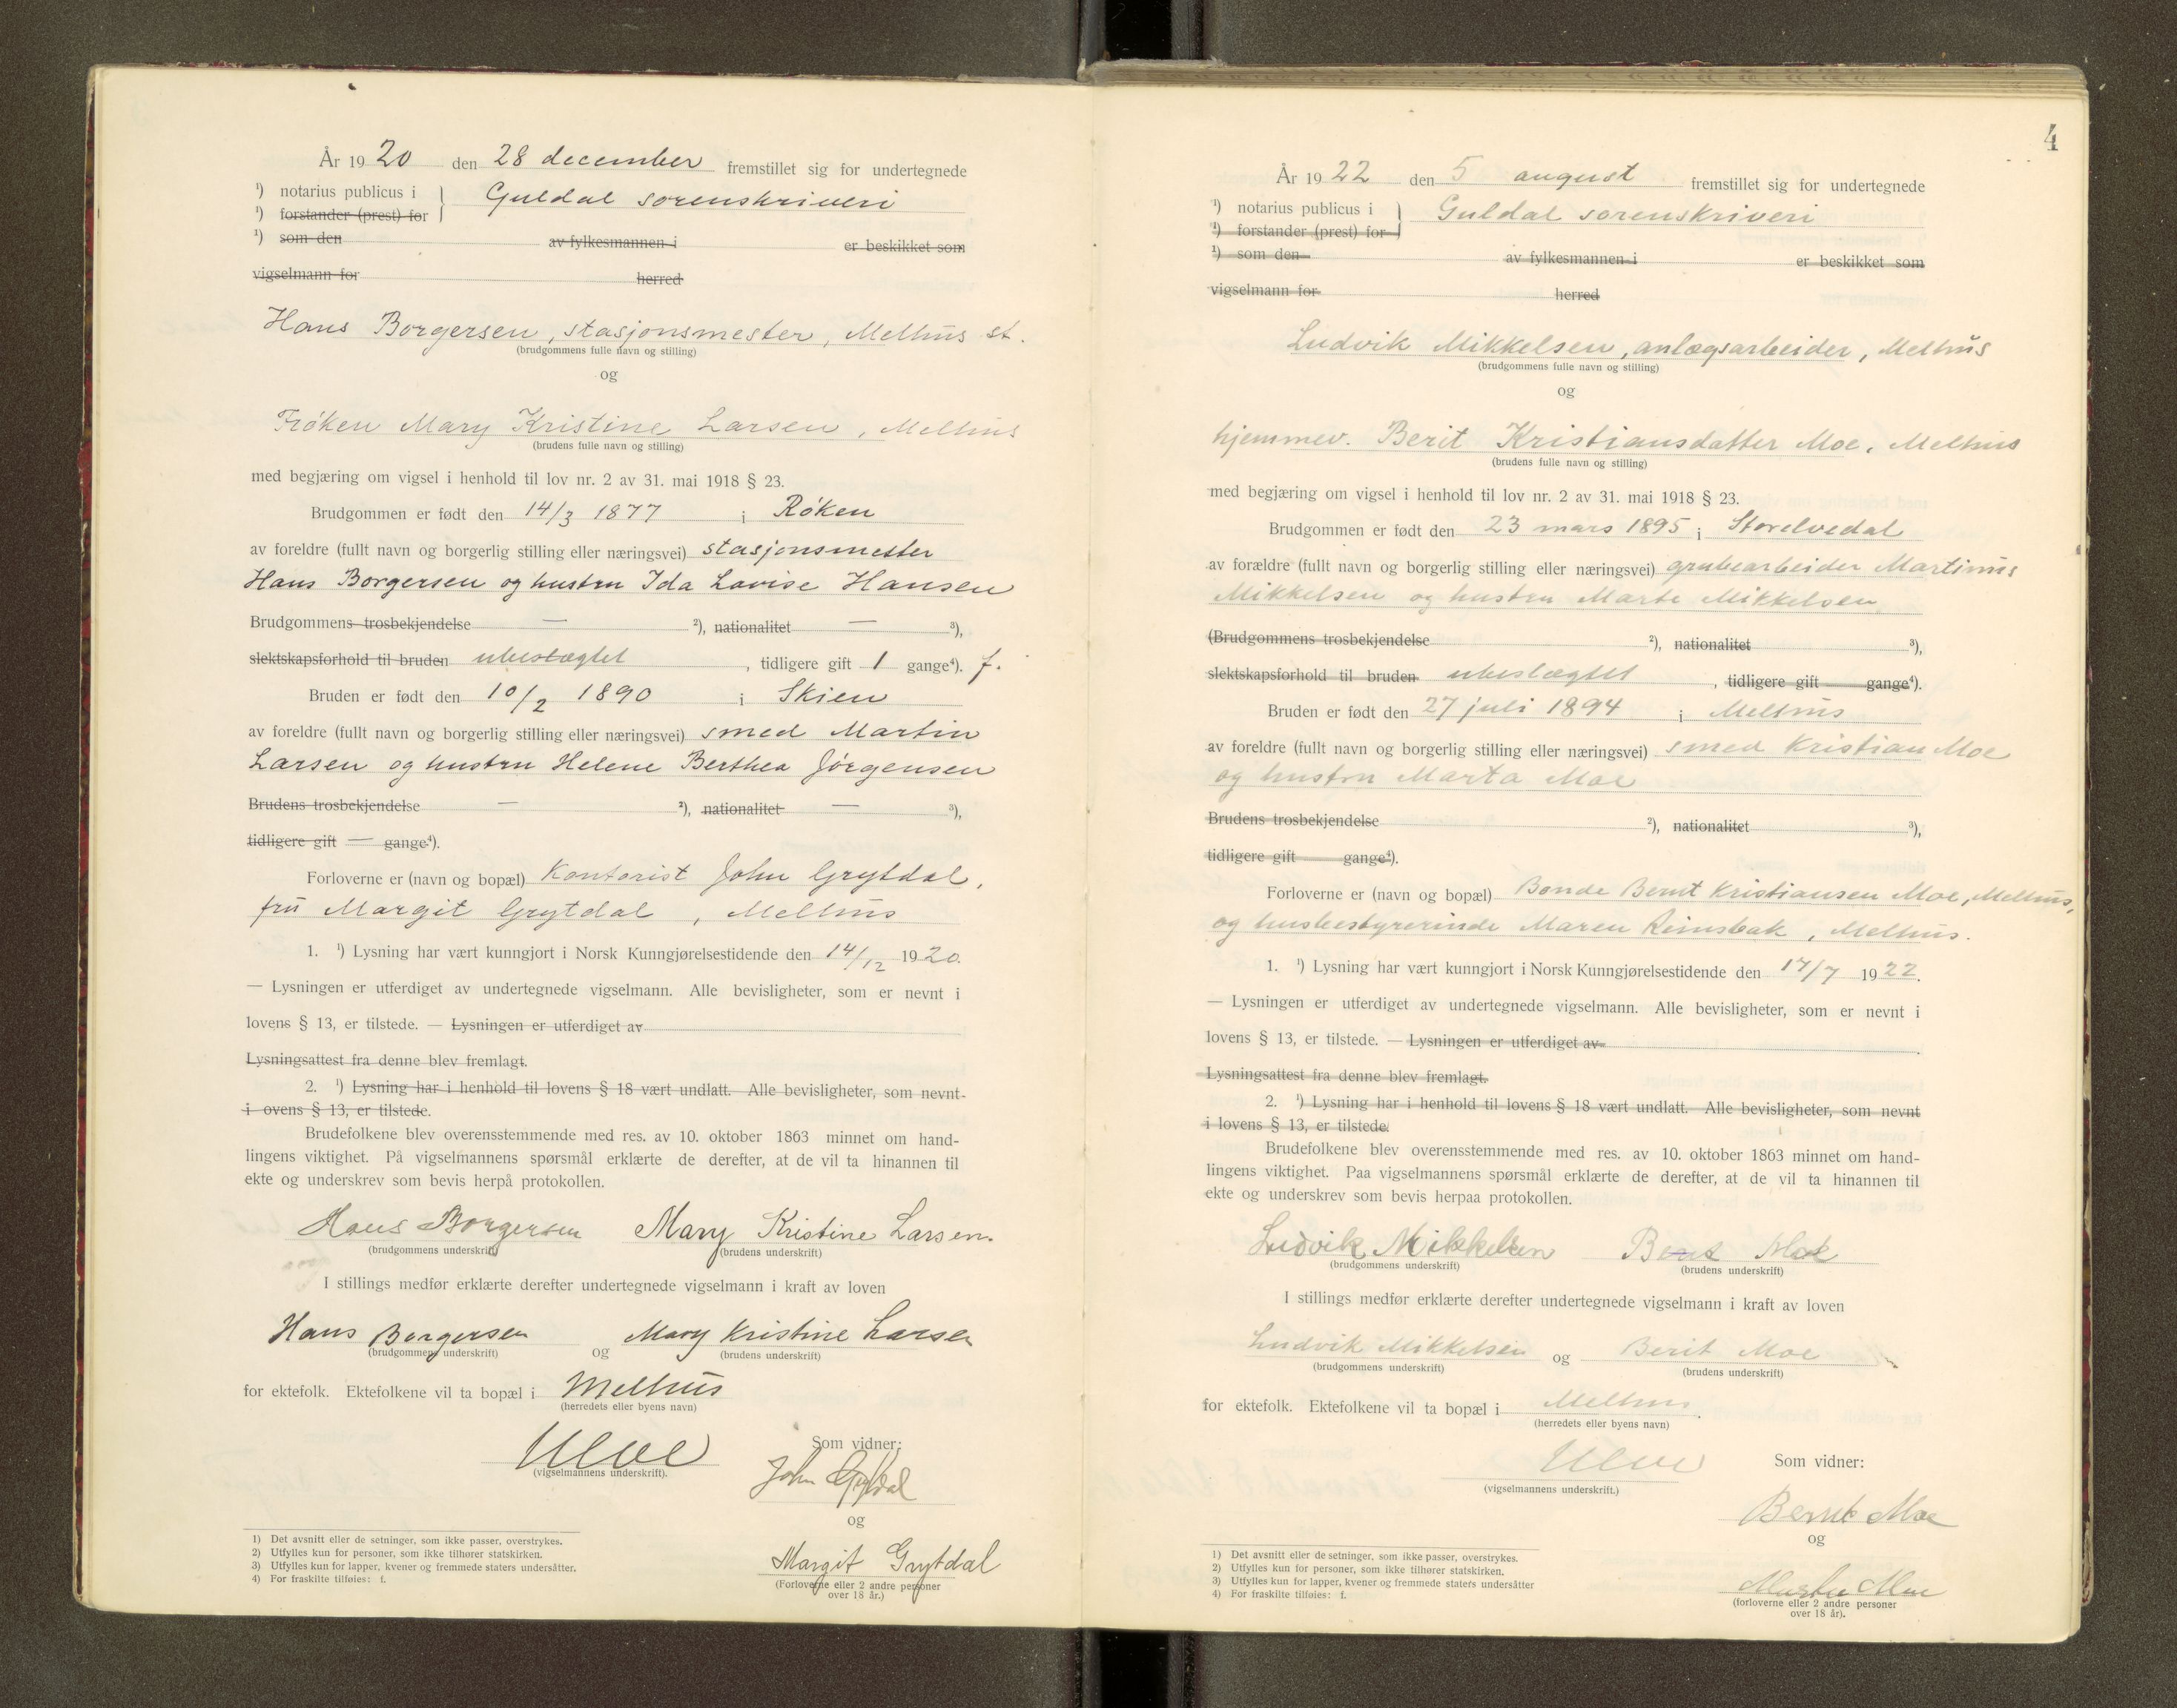 År 1920 den 28 december fremstillet sig for undertegnede
¹) notarius publicus i } Guldal sorenskriveri
¹) forstander (prest) for
¹) som den av fylkesmannen i er beskikket som
vigselmann for herred
Hans Borgersen, stasjonsmester, Melhus st.
(brudgommens fulle navn og stilling)
og
Frøken Mary Kristine Larsen, Melhus
(brudens fulle navn og stilling)
med begjæring om vigsel i henhold til lov nr. 2 av 31. mai 1918 § 23.
Brudgommen er født den 14/3 1877 i Røken
av foreldre (fullt navn og borgerlig stilling eller næringsvei) stasjonsmester
Hans Borgersen og hustru Ida Lovise Hansen
Brudgommens trosbekjendelse — ²), nationalitet — ³),
slektskapsforhold til bruden ubeslægtet, tidligere gift 1 gange⁴). f.
Bruden er født den 10/2 1890 i Skien
av foreldre (fullt navn og borgerlig stilling eller næringsvei) smed Martin
Larsen og hustru Helene Berthea Jørgensen
Brudens trosbekjendelse — ²), nationalitet — ³),
tidligere gift — gange⁴).
Forloverne er (navn og bopæl) Kontorist John Grytdal,
fru Margit Grytdal, Melhus
1. ¹) Lysning har vært kunngjort i Norsk Kunngjørelsestidende den 14/12 1920.
— Lysningen er utferdiget av undertegnede vigselmann. Alle bevisligheter, som er nevnt i
lovens § 13, er tilstede. — Lysningen er utferdiget av
Lysningsattest fra denne blev fremlagt.
2. ¹) Lysning har i henhold til lovens § 18 vært undlatt. Alle bevisligheter, som nevnt
i ovens § 13, er tilstede.
Brudefolkene blev overensstemmende med res. av 10. oktober 1863 minnet om hand-
lingens viktighet. På vigselmannens spørsmål erklærte de derefter, at de vil ta hinannen til
ekte og underskrev som bevis herpå protokollen.
Hans Borgersen Mary Kristine Larsen.
(brudgommens underskrift) (brudens underskrift)
I stillings medfør erklærte derefter undertegnede vigselmann i kraft av loven
Hans Borgersen og Mary Kristine Larsen
(brudgommens underskrift) (brudens underskrift)
for ektefolk. Ektefolkene vil ta bopæl i Melhus
(herredets eller byens navn)
Som vidner:
(vigselmannens underskrift).
John Grytdal
og
Margit Grytdal
(Forloverne eller 2 andre personer
over 18 år.)
1) Det avsnitt eller de setninger, som ikke passer, overstrykes.
2) Utfylles kun for personer, som ikke tilhører statskirken.
3) Utfylles kun for lapper, kvener og fremmede staters undersåtter.
4) For fraskilte tilføies: f.
4
År 1922 den 5 august fremstillet sig for undertegnede
¹) notarius publicus i } Guldal sorenskriveri
¹) forstander (prest) for
¹) som den av fylkesmannen i er beskikket som
vigselmann for herred
Ludvik Mikkelsen, anlægsarbeider, Melhus
(brudgommens fulle navn og stilling)
og
hjemmev. Berit Kristiansdatter Moe, Melhus
(brudens fulle navn og stilling)
med begjæring om vigsel i henhold til lov nr. 2 av 31. mai 1918 § 23.
Brudgommen er født den 23 mars 1895 i Storelvedal
av forældre (fullt navn og borgerlig stilling eller næringsvei) grubearbeider Martinus
Mikkelsen og hustru Marte Mikkelsen
(Brudgommens trosbekjendelse ²), nationalitet ³),
slektskapsforhold til bruden ubeslægtet, tidligere gift gange⁴).
Bruden er født den 27 juli 1894 i Melhus
av foreldre (fullt navn og borgerlig stilling eller næringsvei) smed Kristian Moe
og hustru Marta Moe
Brudens trosbekjendelse ²), nationalitet ³),
tidligere gift gange⁴).
Forloverne er (navn og bopæl) Bonde Bernt Kristiansen Moe, Melhus,
og husbestyrerinde Maren Reinsbak, Melhus.
1. ¹) Lysning har vært kunngjort i Norsk Kunngjørelsestidende den 17/7 1922.
— Lysningen er utferdiget av undertegnede vigselmann. Alle bevisligheter, som er nevnt i
lovens § 13, er tilstede. — Lysningen er utferdiget av
Lysningsattest fra denne blev fremlagt.
2. ¹) Lysning har i henhold til lovens § 18 vært undlatt. Alle bevisligheter, som nevnt
i lovens § 13, er tilstede.
Brudefolkene blev overensstemmende med res. av 10. oktober 1863 minnet om hand-
lingens viktighet. Paa vigselmannens spørsmål erklærte de derefter, at de vil ta hinannen til
ekte og underskrev som bevis herpaa protokollen.
Ludvik Mikkelsen Berit Moe
(brudgommens underskrift) (brudens underskrift)
I stillings medfør erklærte derefter undertegnede vigselmann i kraft av loven
Ludvik Mikkelsen og Berit Moe
(brudgommens underskrift) (brudens underskrift)
for ektefolk. Ektefolkene vil ta bopæl i Melhus.
(herredets eller byens navn)
Som vidner:
(vigselmannens underskrift.)
Bernt Moe
og
Moe
(forloverne eller 2 andre personer
over 18 år).
1) Det avsnitt eller de setninger, som ikke passer, overstrykes.
2) Utfylles kun for personer, som ikke tilhører statskirken.
3) Utfylles kun for lapper, kvener og fremmede staters undersåtter
4) For fraskilte tilføies: f.